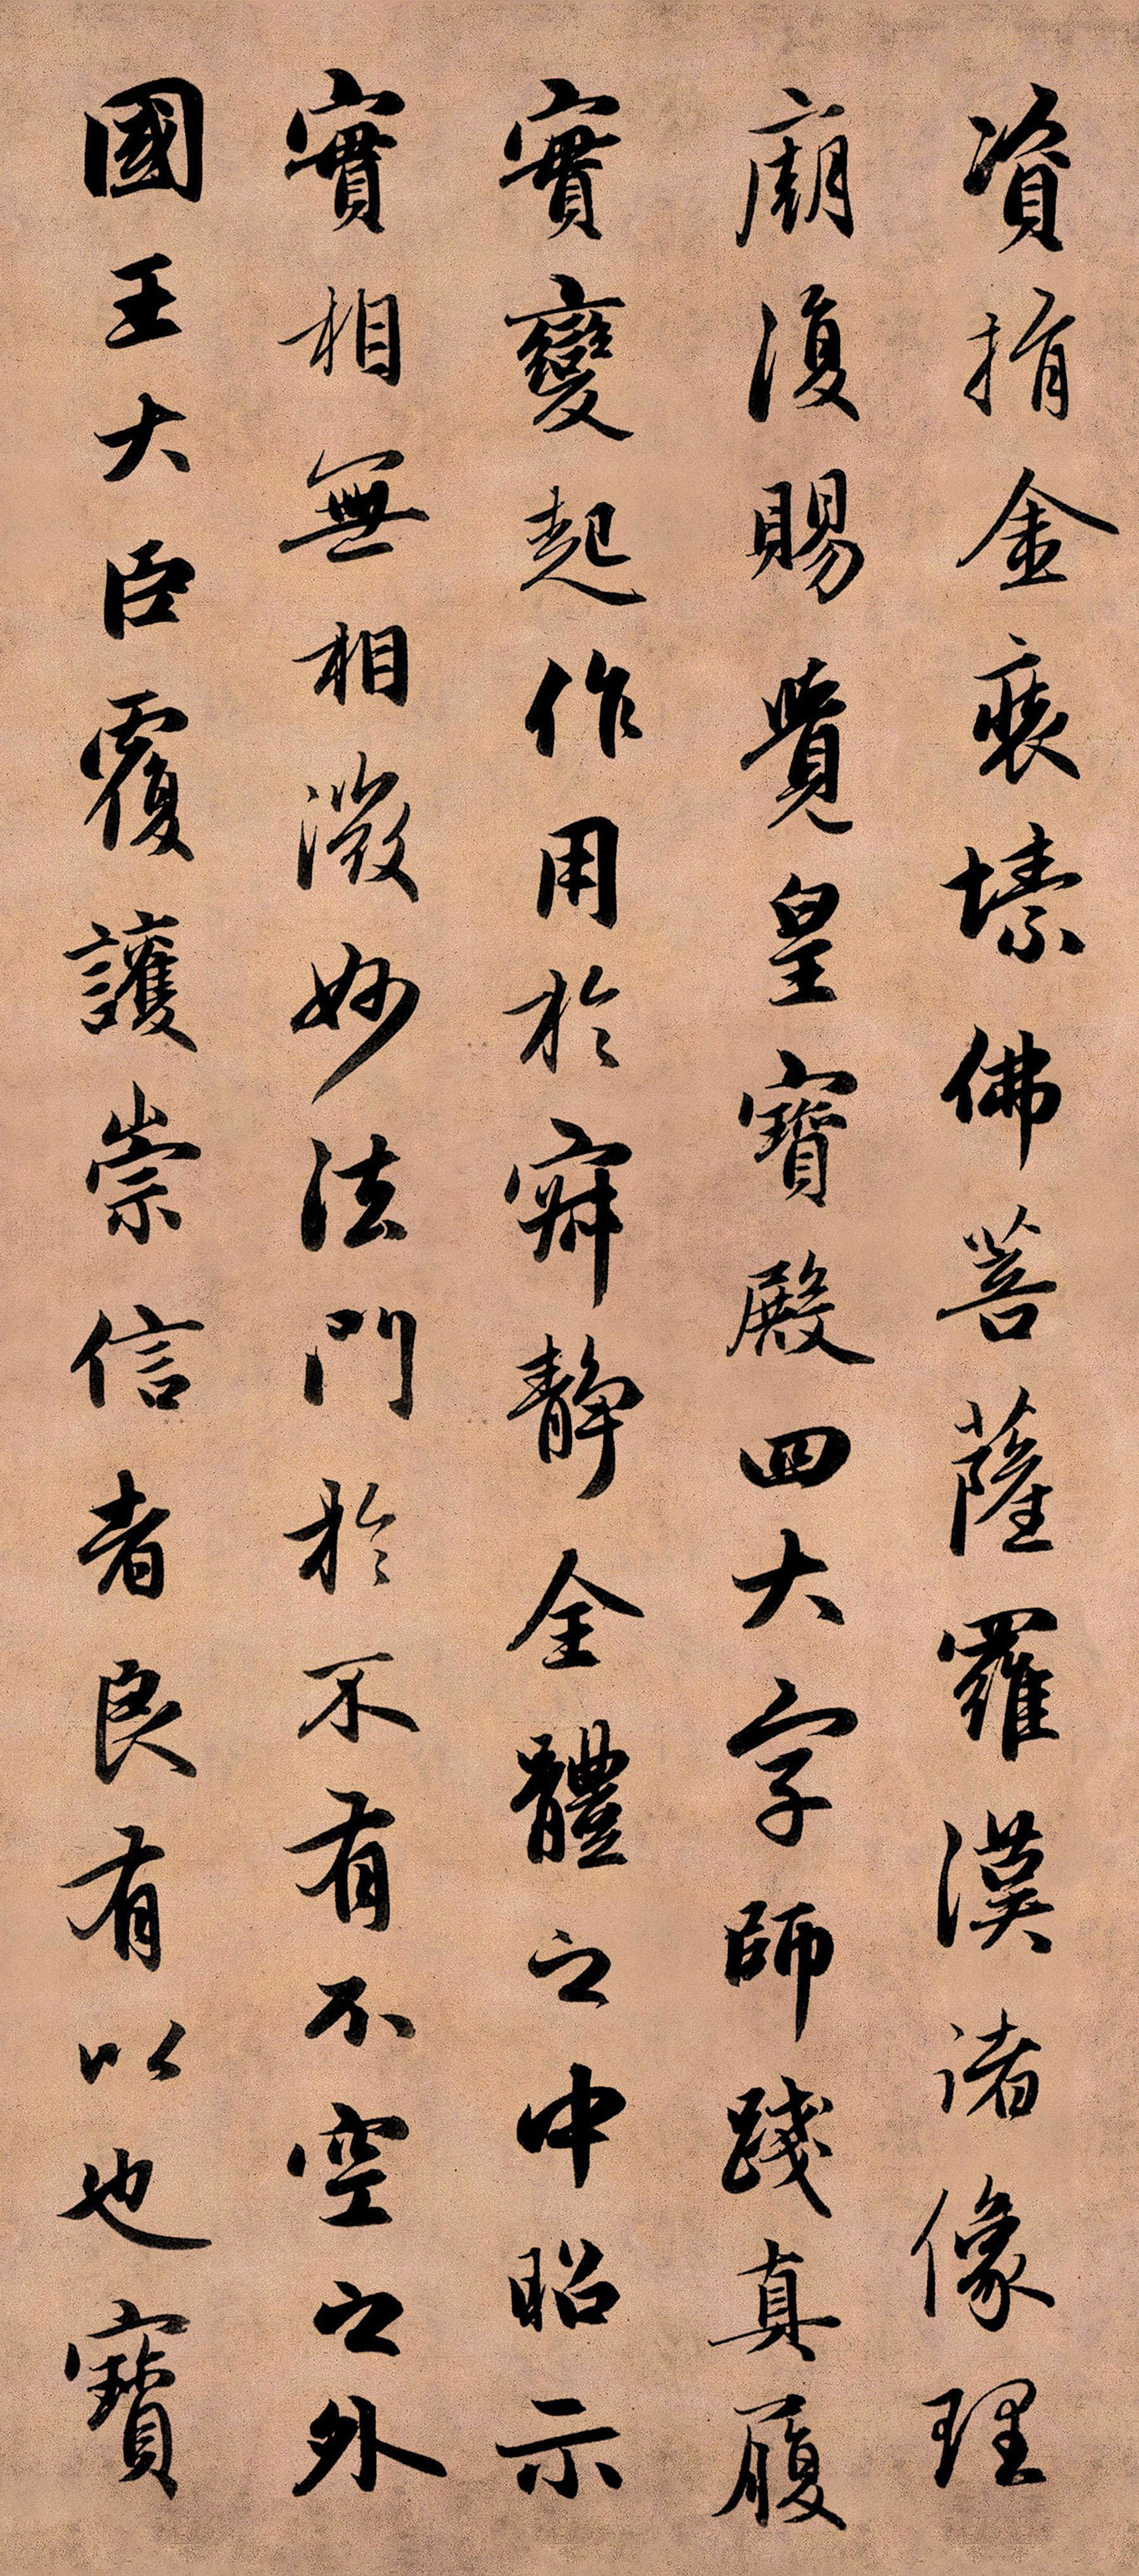 資捐金裒塐佛菩薩羅漢諸像理
廟復賜覺皇寶殿四大字師踐真履
實變起作用於寂靜全體之中昭示
實相無相微妙法門於不有不空之外
國王大臣覆護崇信者良有以也寶